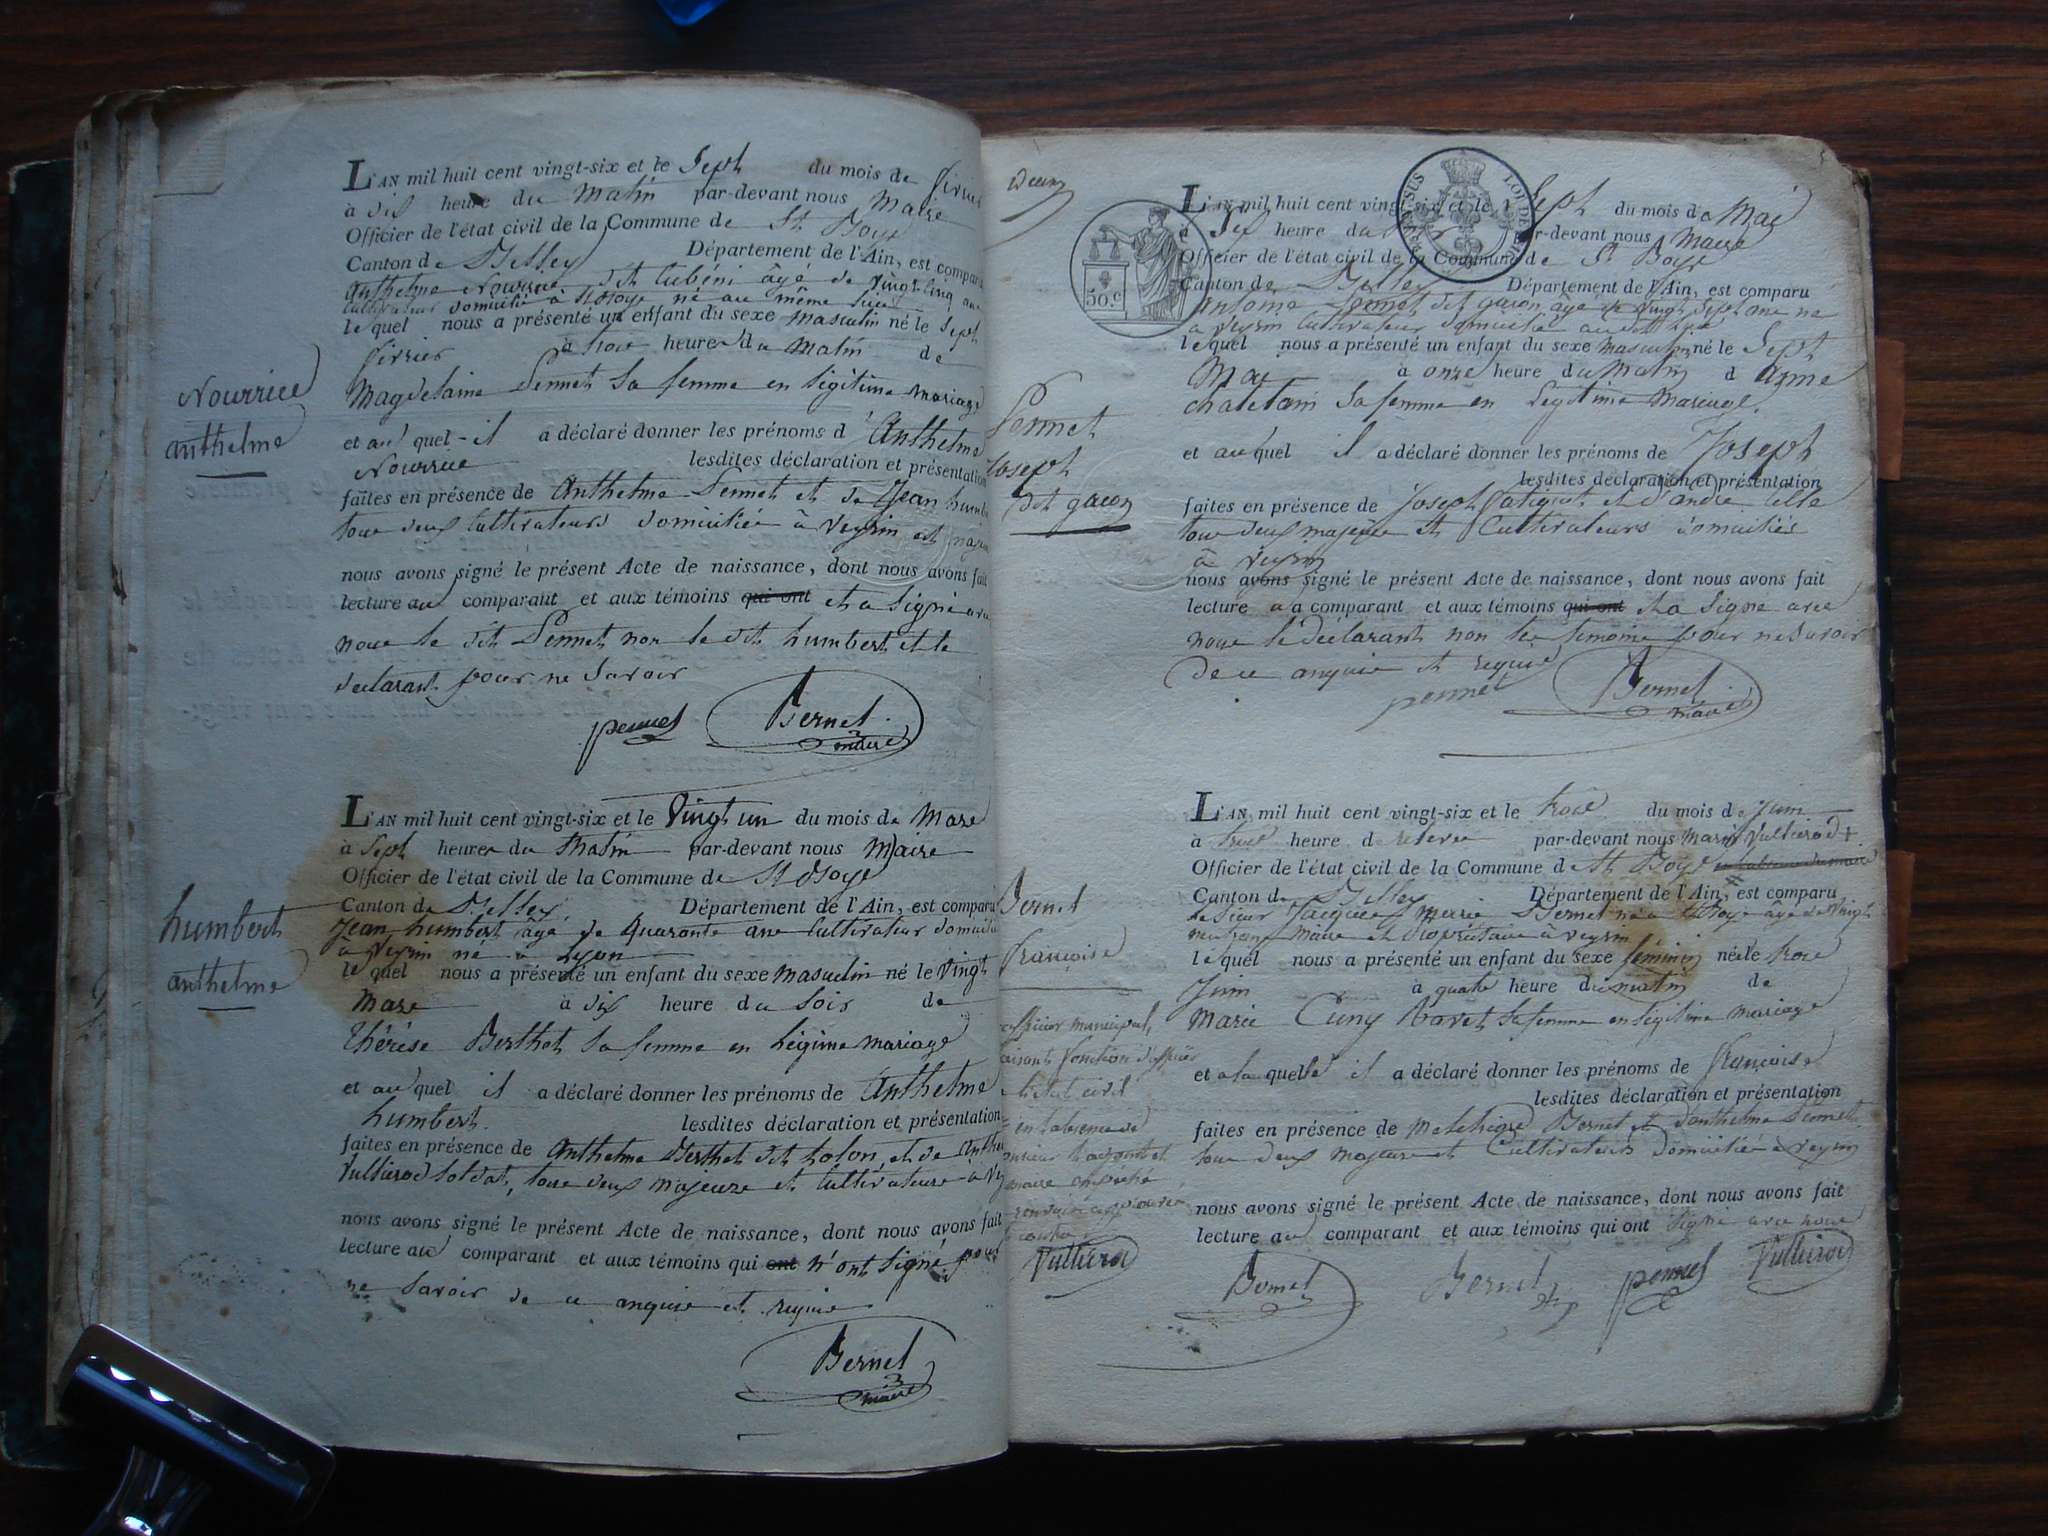 L'AN mil huit cent vingt-six et le Sept du mois de février
à dix heure du Matin par-devant nous Maire
Officier de l'état civil de la Commune de St Boys
Canton de Belley Département de l'Ain, est comparu
Anthelme Nourrice dit âgé de Vingt cinq ans
Cultivateur domicilié à St Boys né au même lieu
le quel nous a présenté un enfant du sexe masculin né le Sept
février à heure du Matin de
Magdelaine Pennet Sa femme en légitime mariage
Nourrice
anthelme
et au quel il a déclaré donner les prénoms d'Anthelme
Nourrice lesdites déclaration et présentation
faites en présence de Anthelme Pennet et de Jean humbert
tous deux Cultivateurs domiciliés à Veyrin et
nous avons signé le présent Acte de naissance, dont nous avons fait
lecture au comparant et aux témoins qui ont et a Signé avec
nous le dit Pennet non le dit humbert et le
déclarant pour ne Savoir
pennet Bernet
maire
L'AN mil huit cent vingt-six et le Vingt un du mois de Mars
à Sept heure du Matin par-devant nous Maire
Officier de l'état civil de la Commune de St Boys
humbert
anthelme
Canton de Belley Département de l'Ain, est comparu
Jean humbert âgé de Quarante ans Cultivateur domicilié
à Veyrin né à Lyon
le quel nous a présenté un enfant du sexe masculin né le Vingt
Mars à dix heure du Soir de
Thérése Berthet Sa femme en légime mariage
et au quel il a déclaré donner les prénoms de Anthelme
humbert lesdites déclaration et présentation
faites en présence de Anthelme Berthet dit tolon et de
Vullierod Soldat, tous deux majeurs et Cultivateurs à
nous avons signé le présent Acte de naissance, dont nous avons fait
lecture au comparant et aux témoins qui ont n'ont Signé pour
ne Savoir de ce enquis et requis
Bernet
maire
L'AN mil huit cent vingt-six et le Sept du mois de Mai
heure du par-devant nous Maire
50.c
Officier de l'état civil de la Commune de St Boys
Canton de Belley Département de l'Ain, est comparu
Antoine Pennet dit garon âgé de Vingt Sept ans né
à Veyrin Cultivateur domicilié au dit lieu
le quel nous a présenté un enfant du sexe masculin né le Sept
Mai à onze heure du Matin d'
chatelain Sa femme en Légitime Mariage
Pennet
Joseph
dit garon
et au quel il a déclaré donner les prénoms de Joseph
lesdites déclaration et présentation
faites en présence de Joseph et d'andré
tous deux majeurs et Cultivateurs domiciliés
à Veyrin
nous avons signé le présent Acte de naissance, dont nous avons fait
lecture au comparant et aux témoins qui ont et a Signé avec
nous le déclarant non les témoins pour ne Savoir
de ce enquis et requis
pennet Bernet
maire
L'AN mil huit cent vingt-six et le trois du mois de Juin
à trois heure de relevée par-devant nous Vullierod
Officier de l'état civil de la Commune de St Boys
Canton de Belley Département de l'Ain, est comparu
le Sieur Jacques Marie Bernet né à St Boys âgé de Vingt
neuf ans Maire et Propriétaire à Veyrin
le quel nous a présenté un enfant du sexe féminin née le trois
Juin à quatre heure du matin de
Marie Cuny Sa femme en légitime mariage
Bernet
françoise
officier municipal
faisant fonction d'officier
de l'état civil
en l'absence de
Vullierod
et a la quelle il a déclaré donner les prénoms de françoise
lesdites déclaration et présentation
faites en présence de Melchior Bernet et d'anthelme Pennet
tous deux Majeurs et Cultivateurs domiciliés à Veyrin
nous avons signé le présent Acte de naissance, dont nous avons fait
lecture au comparant et aux témoins qui ont Signé avec nous
Bernet Bernet pennet Vullierod